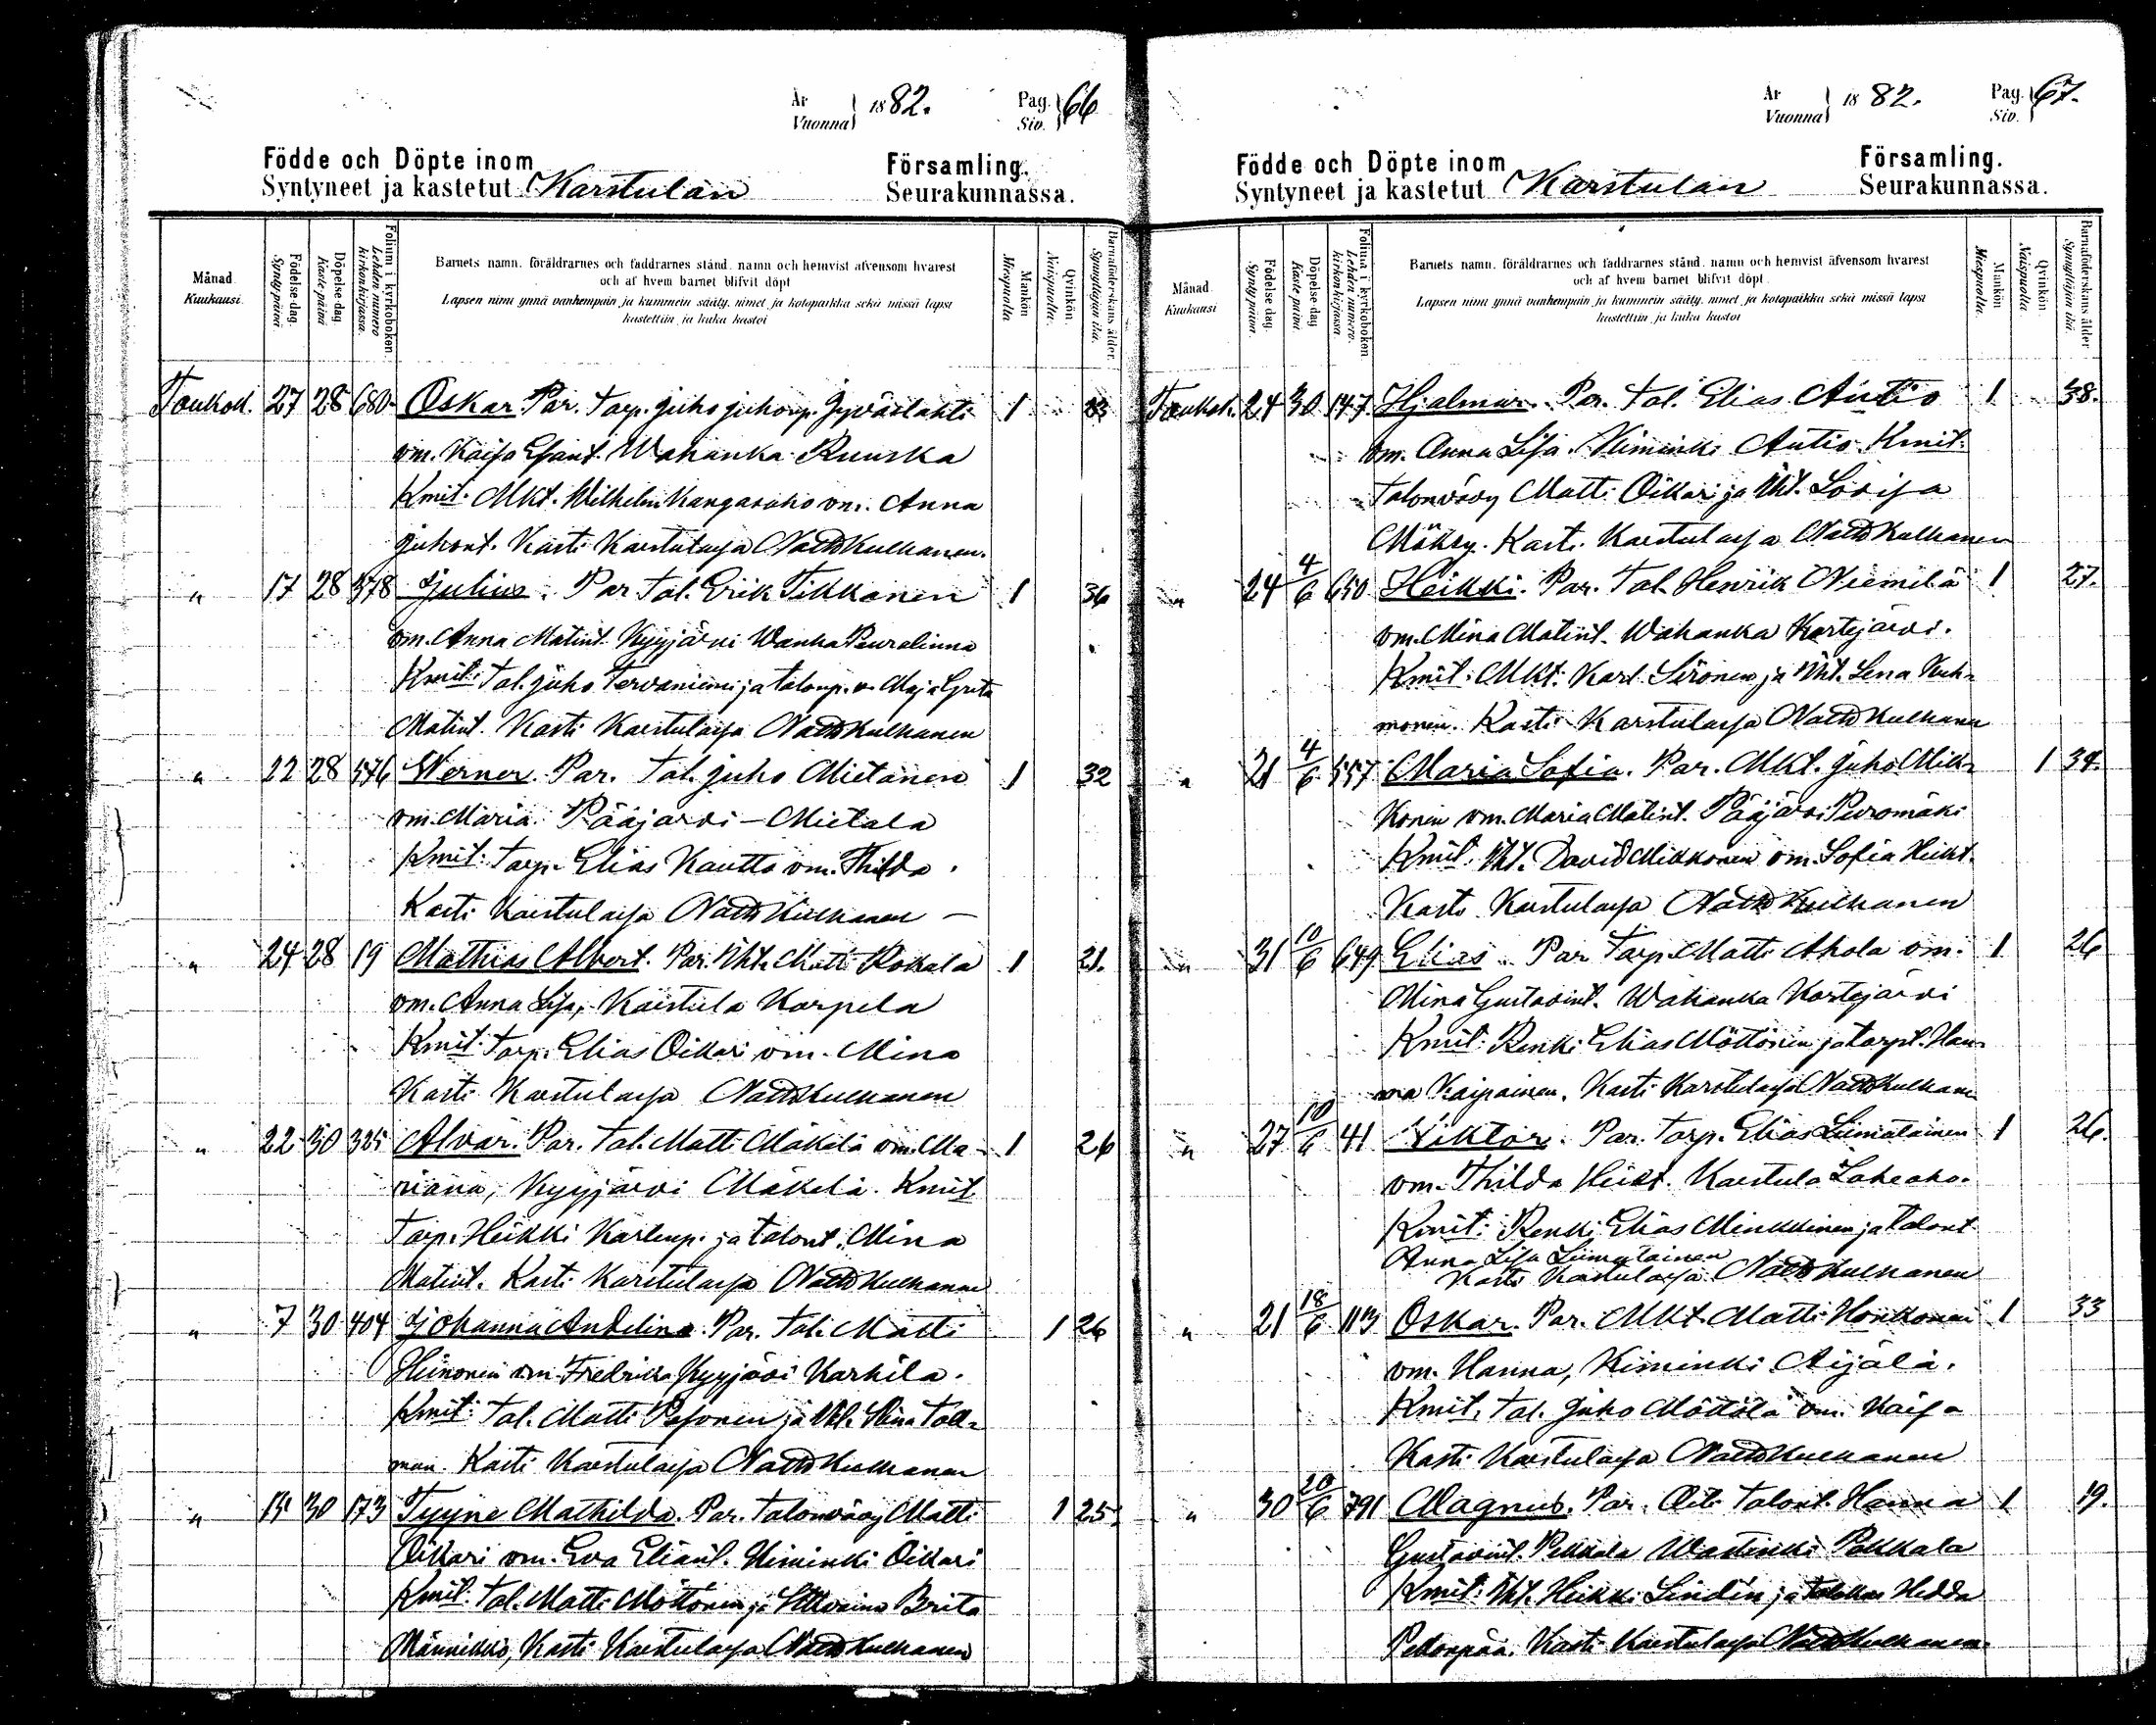 År
Vuonna } 1882.
Pag.
Siv. } 66
Födde och Döpte inom Församling.
Syntyneet ja kastetut Karstulan Seurakunnassa.
Månad. Kuukausi.
Födelse dag. Synty päivä.
Döpelse dag Kaste päivä
Folium i kyrkoboken. Lehden numero kirkonkirjassa.
Barnets namn, föräldrarnes och faddrarnes stånd, namn och hemvist äfvensom hvarest
och af hvem barnet blifvit döpt
Lapsen nimi ynnä vanhempain ja kummein sääty, nimet ja kotopaikka sekä missä lapsi
kastettiin ja kuka kastoi
Mankön Miespuolta
Qvinkön. Naispuolta.
Barnaföderskans ålder. Synnyttäjän ikä.
Toukok. 27 28 680 Oskar. Par. Torp. Juho Juhonp. Jyväslahti 1 23
vm. Kaisa Esant. Wahanka Ruuska
Kmit. Mkt. Wilhelm Kangasaho vm. Anna
Juhont. Kasti Karstulassa Natts Kulhanen.
" 17 28 378 Julius. Par Tal. Erik Tikkanen 1 36
vm. Anna Matint. Kyyjärvi Wanha Peuralinna
Kmit. Tal. Juho Tervaniemi ja talonp. v. Maja Greta
Matint. Kasti Karstulassa Natts Kulhanen
" 22 28 576 Werner. Par. Tal. Juho Mietänen 1 32
vm. Maria. Pääjärvi - Mietala
Kmit: Torp. Elias Kautto vm. Thilda.
Kasti Karstulassa Natts Kulhanen —
" 24 28 19 Mathias Albert. Par. Iht. Matti Kokala 1 21.
vm. Anna Lisa, Karstula Korpela
Kmit. Torp. Elias Oikari vm. Mina
Kasti Karstulassa Natts Kulhanen
" 22 30 325 Alvar. Par. Tal. Matti Mäkelä vm. Ma- 1 26
riana, Kyyjärvi Mäkelä. Kmit
Torp. Heikki Karlenp. ja talont. Mina
Matint. Kasti Karstulassa Natts Kulhanen
" 7 30 404 Johanna Andelina. Par. Tal. Matti 1 26
Heinonen vm. Fredrika Kyyjärvi Karhila.
Kmit: Tal. Matti Pesonen ja Iht. Stina Täll-
man. Kasti Karstulassa Natts Kulhanen
" 15 30 173 Tyyne Mathilda. Par. Talonvävy Matti 1 25.
Oikari vm. Eva Eliant. Kiminki Oikari
Kmit: Tal. Matti Möttönen ja Brita
Männikkö, Kasti Karstulassa Natts Kulhanen
År
Vuonna } 1882.
Pag.
Siv. } 67.
Födde och Döpte inom Församling.
Syntyneet ja kastetut Karstulan Seurakunnassa.
Månad. Kuukausi
Födelse dag. Synty päivä.
Döpelse dag Kaste päivä.
Folium i kyrkoboken. Lehden numero. kirkonkirjassa.
Barnets namn, föräldrarnes och faddrarnes stånd, namn och hemvist äfvensom hvarest
och af hvem barnet blifvit döpt.
Lapsen nimi ynnä vanhempain ja kummein sääty, nimet ja kotopaikka sekä missä lapsi
kastettiin ja kuka kastoi
Mankön Miespuolta.
Qvinkön. Naispuolta.
Barnaföderskans ålder Synnyttäjän ikä.
Toukok. 24 30 147 Hjalmar. Par. Tal. Elias Autio 1 38.
vm. Anna Lisa. Kiminki Autio. Kmit.
Talonvävy Matti Oikari ja Iht. Lovisa
Möksy. Kasti. Karstulassa Natts Kulhanen
" 24 4/6 650 Heikki. Par. Tal. Henrik Niemilä 1 27.
vm. Mina Matint. Wahanka Kortejärvi.
Kmit: Mkt. Karl Sirönen ja Iht. Lena Kuh-
monen. Kasti Karstulassa Natts Kulhanen
" 21 4/6 557 Maria Sofia. Par. Mkt. Juho Mik- 1 34.
konen vm. Maria Matint. Pääjärvi Puromäki
Kmit. Iht. David Mikkonen vm. Sofia Heikt.
Kasti Karstulassa Natts Kulhanen
" 31 10/6 649 Elias. Par Torp. Matti Ahola vm. 1 26
Mina Gustavint. Wahanka Kortejärvi
Kmit: Renki Elias Möttönen ja torpt. Han-
na Kaipainen. Kasti Karstulassa Natts Kulhanen
" 27 10/6 41 Viktor. Par. Torp. Elias Liimatainen 1 26.
vm. Thilda Heikt. Karstula Lakeaho.
Kmit: Renki Elias Minkkinen ja talont
Anna Lisa Liimatainen
Kasti Karstulassa Natts Kulhanen
" 21 18/6 113 Oskar. Par. Mkt. Matti Honkonen 1 33
vm. Hanna, Kiminki Äijälä.
Kmit. Tal. Juho Möttölä vm. Kaisa
Kasti Karstulassa Natts Kulhanen
" 30 20/6 791 Magnus. Par. Äiti Talont. Hanna 1 19.
Gustavint. Pekkala Wastinki Pekkala
Kmit: Iht. Heikki Lindén ja Hedda
Petonpää. Kasti Karstulassa Natts Kulhanen